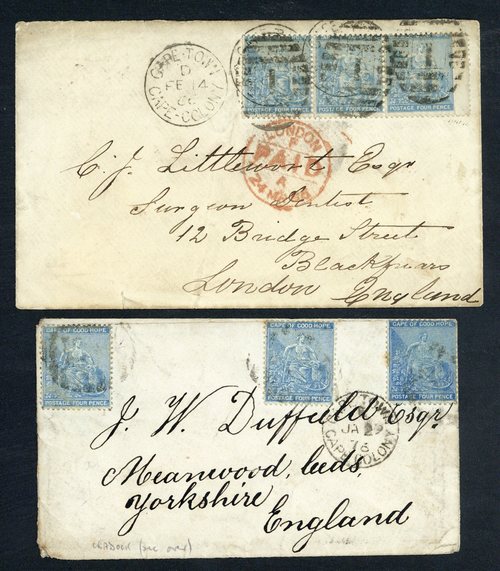 CAPE-TOWN
D
FE 14
CAPE-COLONY
1 1 1
POSTAGE FOUR PENCE POSTAGE FOUR PENCE POSTAGE FOUR PENCE
LONDON
F
PAID
A
24 M
C. J. Littlewort Esqr
Surgeon Dentist
12 Bridge Street
Blackfriars
London England
CAPE OF GOOD HOPE CAPE OF GOOD HOPE CAPE OF GOOD HOPE
POSTAGE FOUR PENCE POSTAGE FOUR PENCE POSTAGE FOUR PENCE
CAPE-TOWN
JA 29
76
CAPE COLONY
J. W. Duffield Esqr.
Meanwood, Leeds,
Yorkshire
England
CRADOCK (see over)